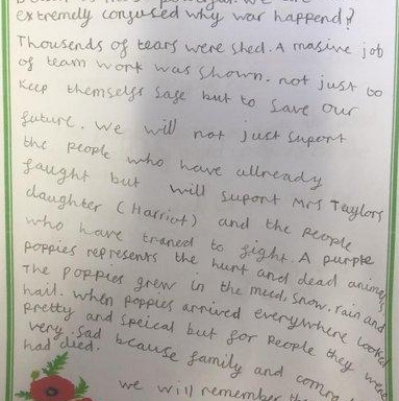 extremely confused why war happend?
Thousands of tears were shed. A masive job
of team work was shown. not just to
keep themselfs safe but to save our
future. We will not just suport
the people who have allready
faught but will suport Mrs Taylors
daughter (Harriot) and the people
who have traned to fight. A purple
poppies represents the hurt and dead animals
The poppies grew in the mud, snow, rain and
hail. when poppies arrived everywhere looked
pretty and speical but for people they were
very sad bcause family and
had died.
we will remember